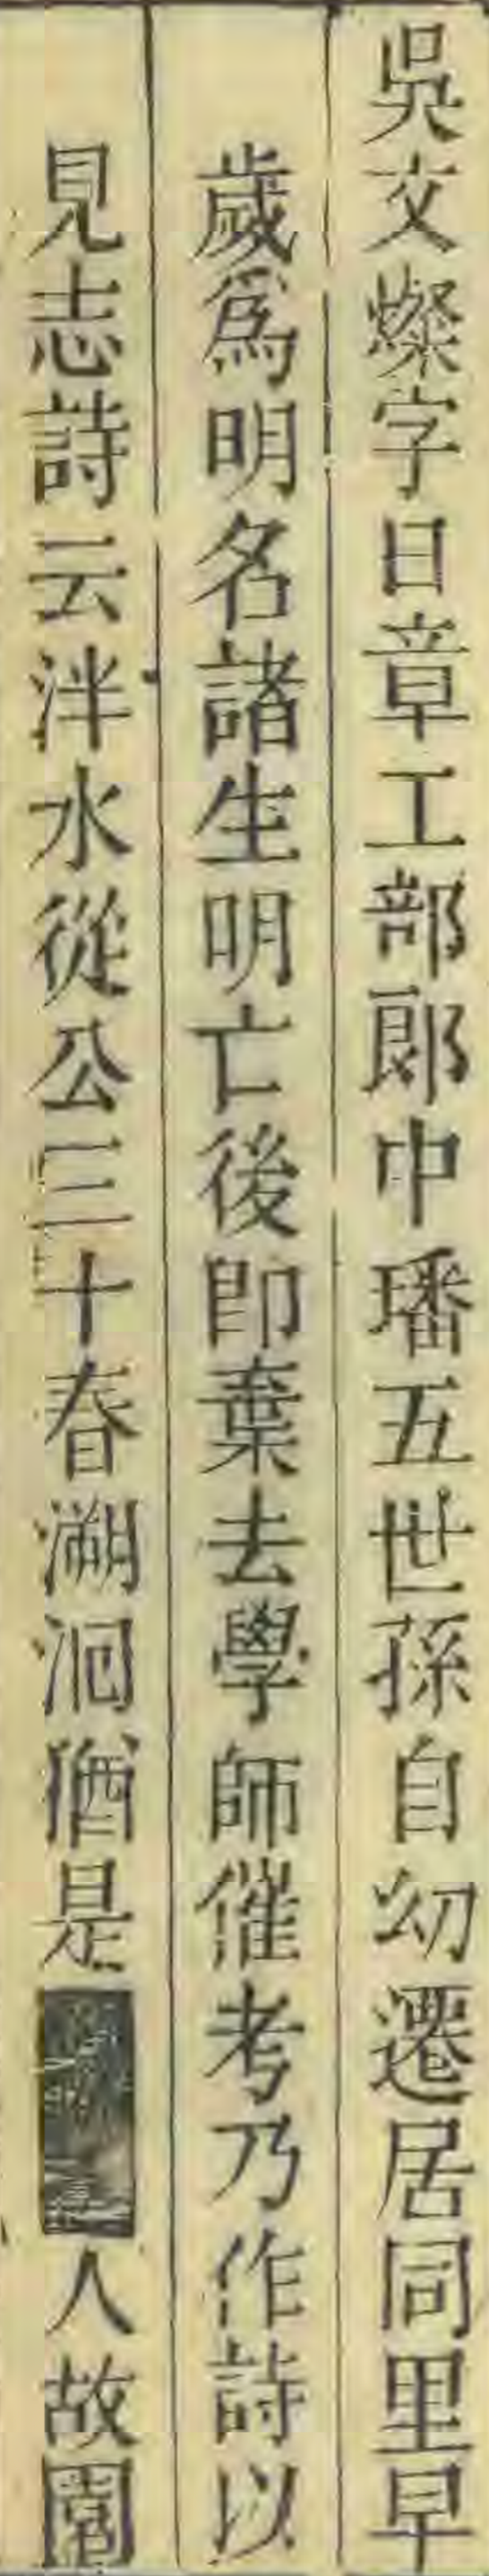 吳文燦字日章工部郎中璠五世孫自幼遷居同里早
歲爲明名諸生明亡後卽棄去學師催考乃作詩以
見志詩云泮水從公三十春溯洄猶是人故園